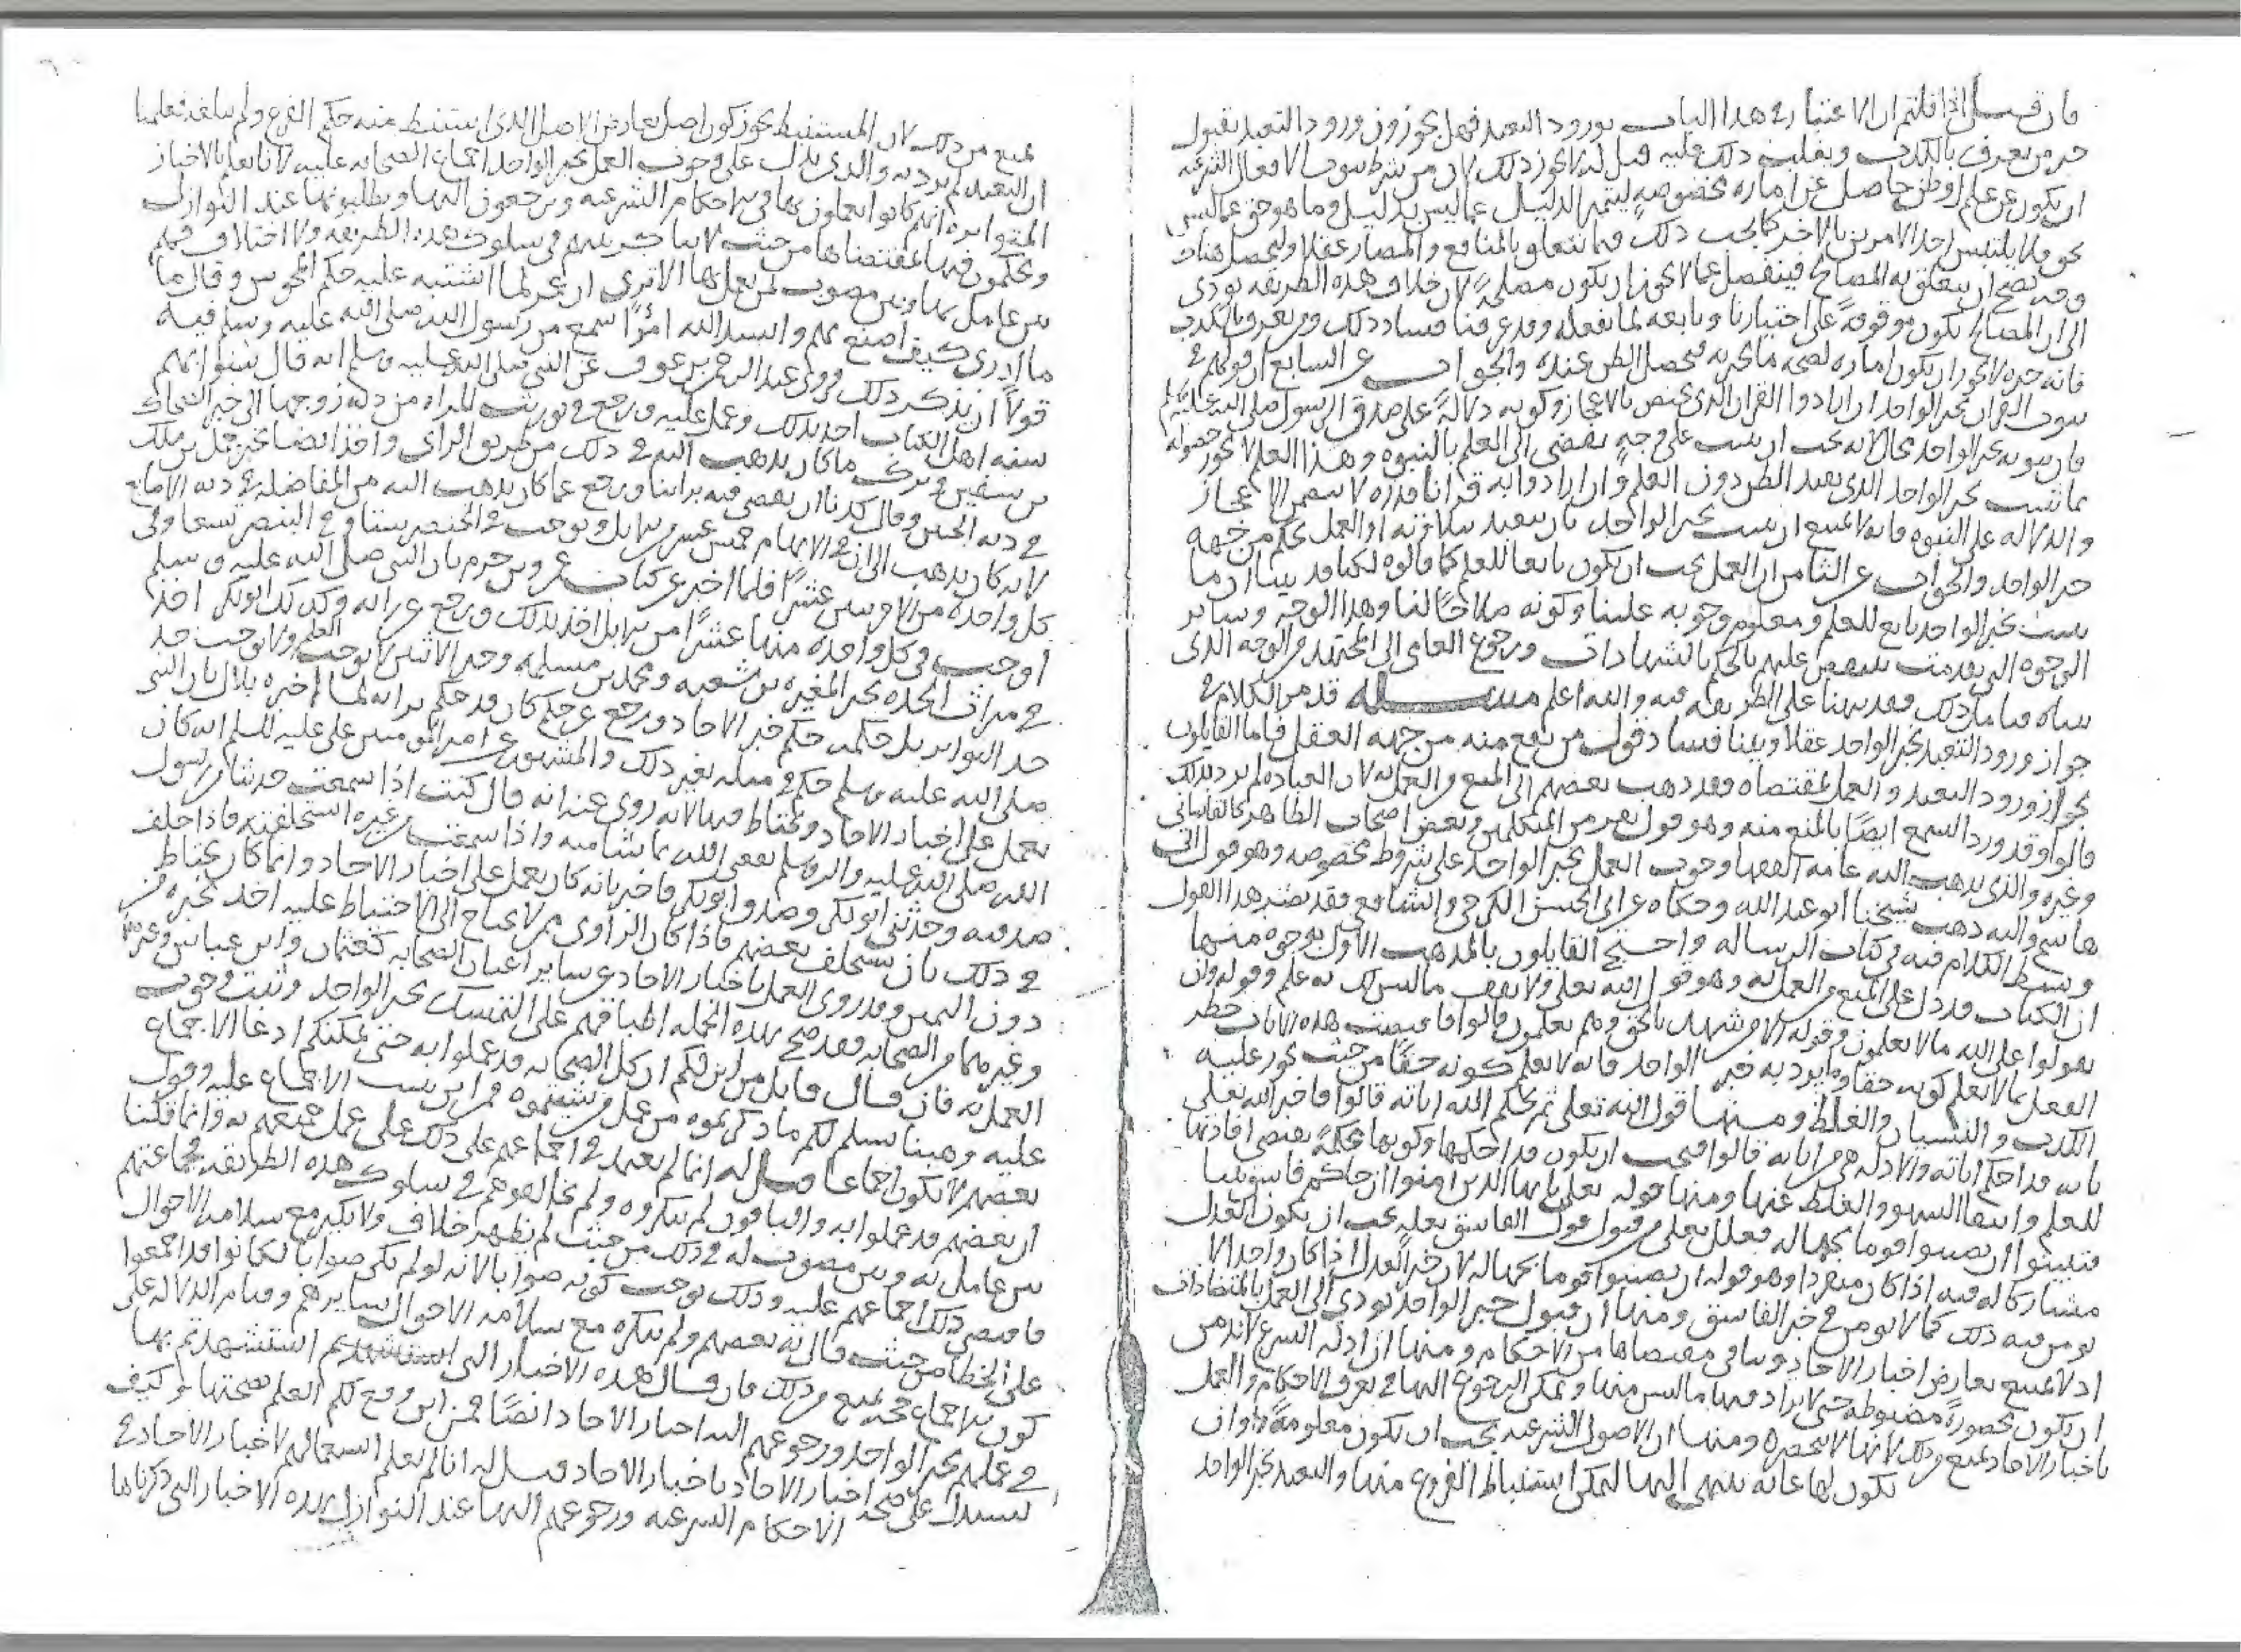 فان قيل اذا قلتم ان الاعتبار في هذا الباب بورود التعبد فهل تجوزون ورود التعبد بقبول
خبر من يعرف بالكذب ويغلب ذلك عليه قيل له لا يجوز ذلك لان من شرط ثبوت الافعال الشرعيه
ان يكون عن علم او ظن حاصل عن اماره مخصوصه ليتميز الدليل عما ليس بدليل وما هو حق عما ليس
بحق ولا يلتبس احد الامرين بالاخر كما يجب ذلك فيما يتعلق بالمنافع والمضار عقلا
وقد يصح ان يتعلق به المصالح فينفصل عما لا يجوز ان يكون مصلحة لان خلاف هذه الطريقه يودي
الى ان المصالح تكون موقوفة على اختيارنا وتابعه لما نفعله وقد عرفنا فساد ذلك ومن يعرف بالكذب
فانه خبره لا يجوز ان يكون اماره لصحه ما يخبر به فيحصل الظن عنده والجواب عن السابع ان قولهم في
ثبوت القران بخبر الواحد ان ارادوا القران الذي يختص بالاعجاز وكونه دلالة على صدق الرسول صلى الله عليه وسلم
فان ثبوته بخبر الواحد محال لانه يجب ان يثبت على وجه يفضي الى العلم بالنبوه وهذا العلم لا يجوز حصوله
بما ثبت بخبر الواحد الذي يفيد الظن دون العلم وان ارادوا به قرانا قدره لا يتضمن الاعجاز
والدلاله على النبوه فانه لا يمتنع ان يثبت بخبر الواحد بان يتعبد بتلاوته او العمل بحكم من جهه
خبر الواحد والجواب عن الثامن ان العمل يجب ان يكون تابعا للعلم كما قالوه لكنا قد بينا ان ما
يثبت بخبر الواحد تابع للعلم ومعلوم وجوبه علينا وكونه صلاحا لنا وهذا الوجه وساير
الوجوه التي تقدمت ينتقض عليهم بالحكم بالشهادات ورجوع العامي الى المجتهد والوجه الذي
بيناه فتامل ذلك فقد نبهنا على الطريقه فيه والله اعلم مسئله قد مر الكلام في
جواز ورود التعبد بخبر الواحد عقلا وبينا فساد قول من يمنع منه من جهه العقل فاما القايلون
بجواز ورود التعبد والعمل بمقتضاه فقد ذهب بعضهم الى المنع من العمل به لان العباده لم ترد بذلك
قالوا وقد ورد السمع ايضا بالمنع منه وهو قول نفر من المتكلمين وبعض اصحاب الظاهر كالقاساني
وغيره والذي يذهب اليه عامه الفقها وجوب العمل بخبر الواحد على شروط مخصوصه وهو قول ابي
هاشم واليه ذهب شيخنا ابو عبد الله وحكاه عن ابي الحسن الكرخي والشافعي فقد نصر هذا القول
وبسط الكلام فيه في كتاب الرساله واحتج القايلون بالمذهب الاول بوجوه منها
ان الكتاب قد دل على المنع من العمل به وهو قول الله تعلى ولا تقف ما ليس لك به علم وقوله وان
تقولوا على الله ما لا تعلمون وقوله الا من شهد بالحق وهم يعلمون قالوا فاقتضت هذه الايات حظر
العمل بما لا يعلم كونه حقا وما يرد به خبر الواحد فانه لا يعلم كونه حقا من حيث يجوز عليه
الكذب والنسيان والغلط ومنها قول الله تعلى ثم يحكم الله اياته قالوا فاخبر الله تعلى
بانه قد احكم اياته والادله هي من اياته قالوا فيجب ان يكون قد احكمها وكونها محكمة يقتضي افادتها
للعلم وانتفا السهو والغلط عنها ومنها قوله تعلى يا يها الذين امنوا ان جاكم فاسق بنبا
فتبينوا ان تصيبوا قوما بجهاله فعلل تعلى قبول قول الفاسق بعلة يجب ان يكون العدل
مشاركا له فيه اذا كان منفردا وهو قوله ان تصيبوا قوما بجهاله لان خبر العدل اذا كان واحدا لا
يومن فيه ذلك كما لا يومن في خبر الفاسق ومنها ان قبول خبر الواحد يودي الى العمل بالمتضادات
اذ لا يمتنع تعارض اخبار الاحاد وتنافي مقتضاها من الاحكام ومنها ان ادله الشرع لا بد من
ان يكون محصورة مضبوطه حتى لا يزاد فيها ما ليس منها ويمكن الرجوع اليها في تعرف الاحكام والعمل
باخبار الاحاد يمنع من ذلك لانها لا تنحصر ومنها ان الاصول الشرعيه يجب ان تكون معلومة وان
يكون لها غايه ينتهى اليها ليمكن استنباط الفروع منها والتعبد بخبر الواحد
يمنع من ذلك لان المستنبط يجوز كون اصل يعارض الاصل الذي استنبط منه حكم الفرع ولم يبلغه فعلمنا
ان التعبد لم يرد به والذي يدل على وجوب العمل بخبر الواحد اجماع الصحابه عليه لانا نعلم بالاخبار
المتواتره انهم كانوا يعملون بها في الاحكام الشرعيه ويرجعون اليها ويطلبونها عند النوازل
ويحكمون فيها بمقتضاها من حيث لا يناكر بينهم في سلوك هذه الطريقه ولا اختلاف فهم
بين عامل بها وبين مصوب لمن يعمل بها الا ترى ان عمر لما اشتبه عليه حكم المجوس وقال ما
ما ادري كيف اصنع بهم وانشد الله امرءا سمع من رسول الله صلى الله عليه وسلم فيه
قولا ان يذكر ذلك فروى عبد الرحمن بن عوف عن النبي صلى الله عليه وسلم انه قال سنوا بهم
سنه اهل الكتاب اخذ بذلك وعمل عليه ورجع في توريث المراه من ديه زوجها الى خبر الضحاك
بن سفين وترك ما كان يذهب اليه في ذلك من طريق الراي واخذ ايضا بخبر حمل بن ملك
في ديه الجنين وقال كدنا ان نقضي فيه براينا ورجع عما كان يذهب اليه من المفاضله في ديه الاصابع
لانه كان يذهب الى ان في الابهام خمس عشره من الابل ويوجب في الخنصر ستا وفي البنصر تسعا وفي
كل واحده من الاخريين عشرا فلما اخبر عن كتاب عمرو بن حزم بان النبي صلى الله عليه وسلم
اوجب في كل واحده منها عشرا من الابل اخذ بذلك ورجع عن رايه وكذلك ابو بكر اخذ
في ميراث الجده بخبر المغيره بن شعبه ومحمد بن مسلمه وخبر الاثنين لا يوجب العلم ولا يوجب حد
حد التواتر بل حكمه حكم خبر الاحاد ورجع عن حكم كان قد حكم برايه لما اخبره بلال بان النبي
صلى الله عليه وسلم حكم في مثله بغير ذلك والمشهور عن امير المومنين علي عليه السلم انه كان
يعمل على اخبار الاحاد ويحتاط فيها لانه روي عنه انه قال كنت اذا سمعت حديثا من رسول
الله صلى الله عليه واله وسلم نفعني الله بما شا منه واذا سمعت من غيره استحلفته فاذا حلف
صدقته وحدثني ابو بكر وصدق ابو بكر فاخبر بانه كان يعمل على اخبار الاحاد وانما كان يحتاط
في ذلك بان يستحلف بعضهم فاذا كان الراوي ممن لا يحتاج الى الاحتياط عليه اخذ بخبره من
دون اليمين وقد روي العمل باخبار الاحاد عن ساير اعيان الصحابه كعثمان وابن عباس
وغيرهما من الصحابه فقد صح بهذه الجمله اطباقهم على التمسك بخبر الواحد وثبت وجوب
العمل به فان قال قايل من اين لكم ان كل الصحابه قد عملوا به حتى يمكنكم ادعا الاجماع
عليه وهبنا نسلم لكم ما ذكرتموه من عمل من سميتموه فمن اين يثبت الاجماع عليه وقول
بعضهم لا يكون اجماعا قيل له انا لم نعتمد في اجماعهم على ذلك على عمل جميعهم به وانما قلنا
ان بعضهم قد عملوا به والباقون لم ينكروه ولم يخالفوهم في سلوك هذه الطريقه فجماعتهم
بين عامل به وبين مصوب له في ذلك من حيث لم يظهر خلاف ولا نكير مع سلامه الاحوال
فاقتضى ذلك اجماعهم عليه وذلك يوجب كونه صوابا لانه لو لم يكن صوابا لكانوا قد اجمعوا
على الخطا من حيث قال به بعضهم ولم ينكره مع سلامه الاحوال سايرهم وقيام الدلاله على
كون الاجماع حجه يمنع من ذلك فان قال هذه الاخبار التي استشهدتم بها
في عملهم بخبر الواحد ورجوعهم اليه اخبار الاحاد ايضا فمن اين وقع لكم العلم بصحتها وكيف
يستدل على صحه اخبار الاحاد باخبار الاحاد قيل له انا لم نعلم استعمالهم لاخبار الاحاد في
الاحكام الشرعيه ورجوعهم اليها عند النوازل بهذه الاخبار التي ذكرناها